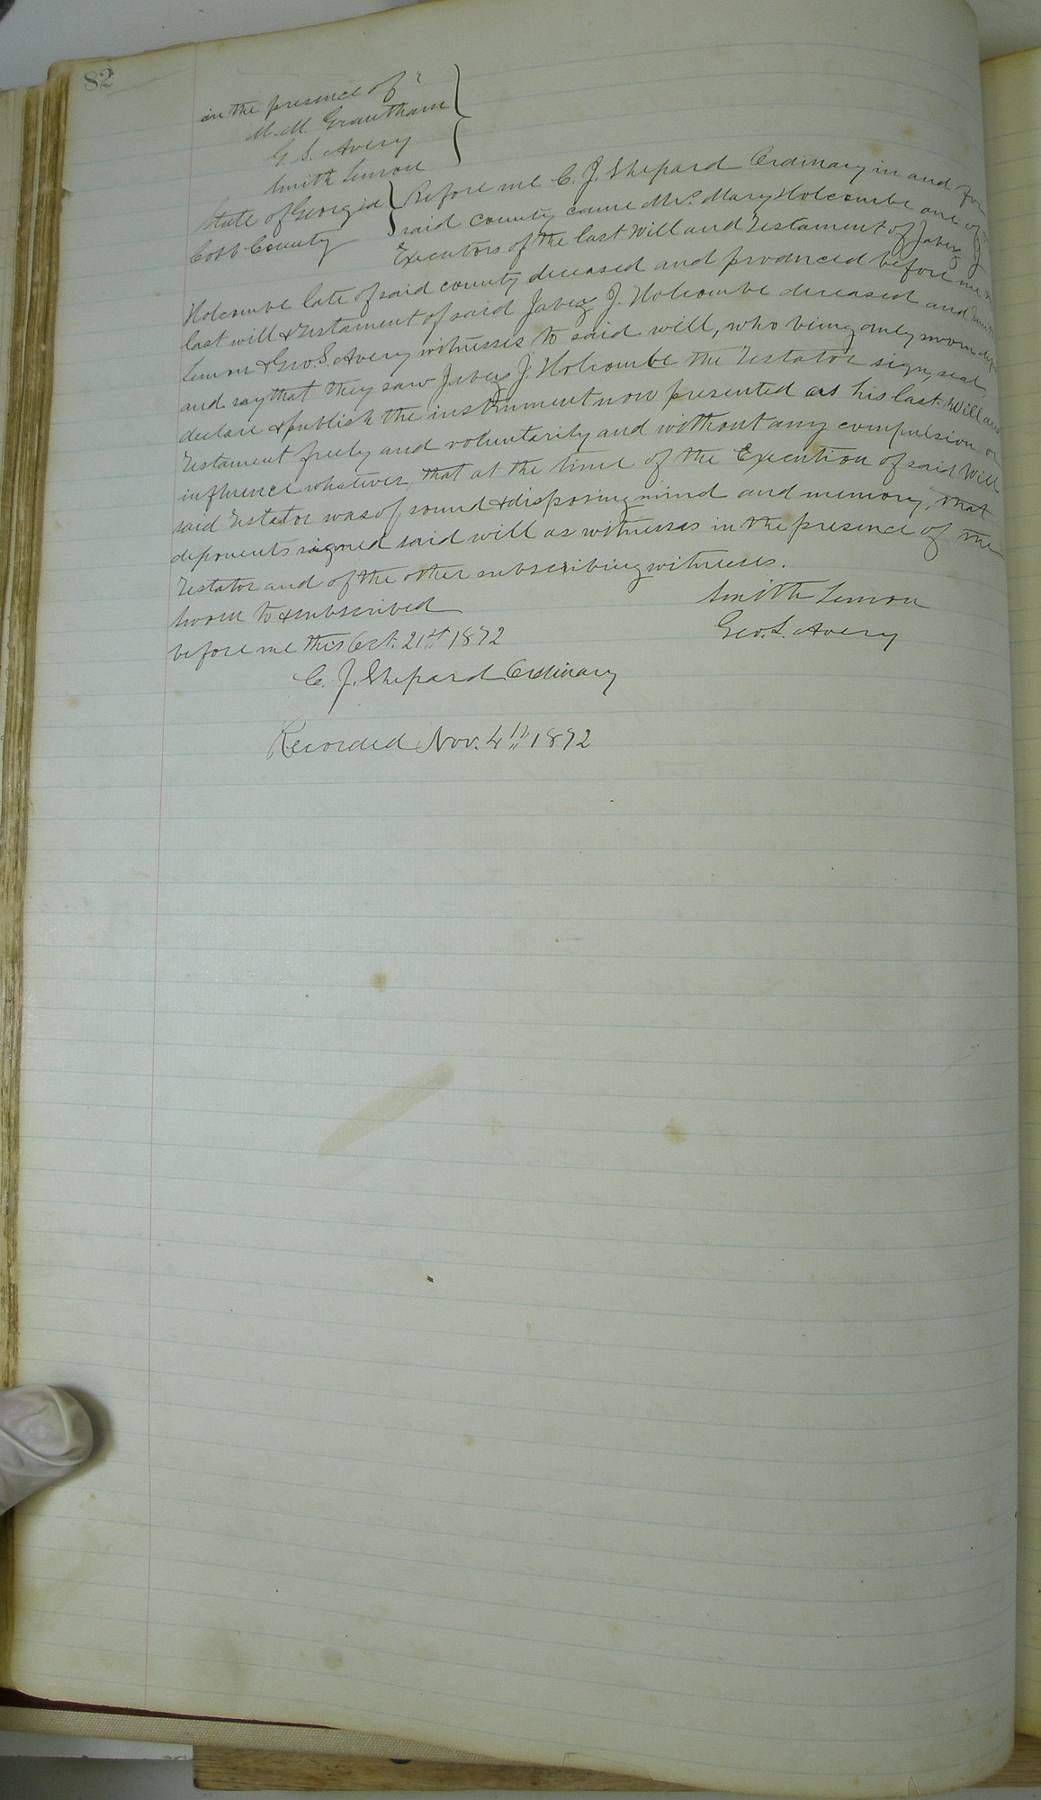 82
in the presence of
M. M Grantham
G. S. Avery
Smith Lemon
State of Georgia
Cobb County
Before me C. J. Shepard Ordinary in and for
said county came Mrs. Mary Holcombe one of
Executors of the last Will and Testament of Jabez J
Holcombe late of said county deceased and produced before me
last will & Testament of said Jabez J. Holcombe deceased and
Lemon & Geo. S. Avery witnesses to said will, who being duly sworn
and say that they saw Jabez J. Holcombe the Testator sign, seal,
declare & publish the instrument now presented as his last Will and
Testament freely and voluntarily and without any compulsion or
influence whatever that at the time of the Execution of said Will
said Testator was of sound & disposing mind and memory, that
deponents signed said will as witnesses in the presence of the
Testator and of the other subscribing witnesses.
Sworn to & subscribed
before me this Oct. 21st 1872
Smith Lemon
Geo. S. Avery
C. J. Shepard Ordinary
Recorded Nov. 4th 1872